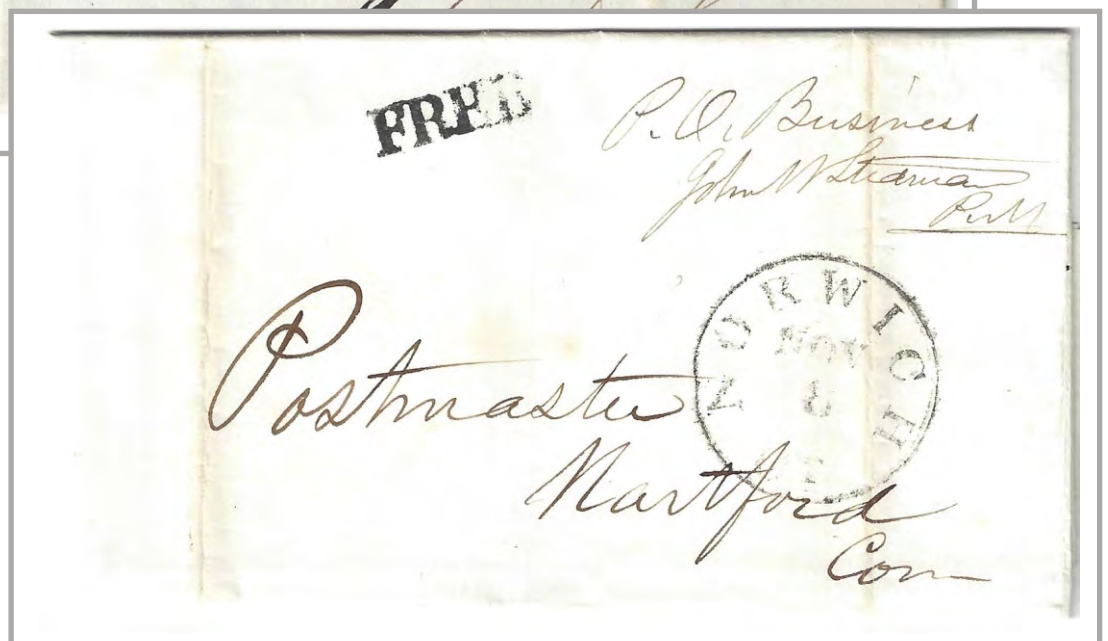 FREE
P. O. Business
John W Stedman
P. M
NORWICH
NOV
6
Postmaster
Hartford
Conn